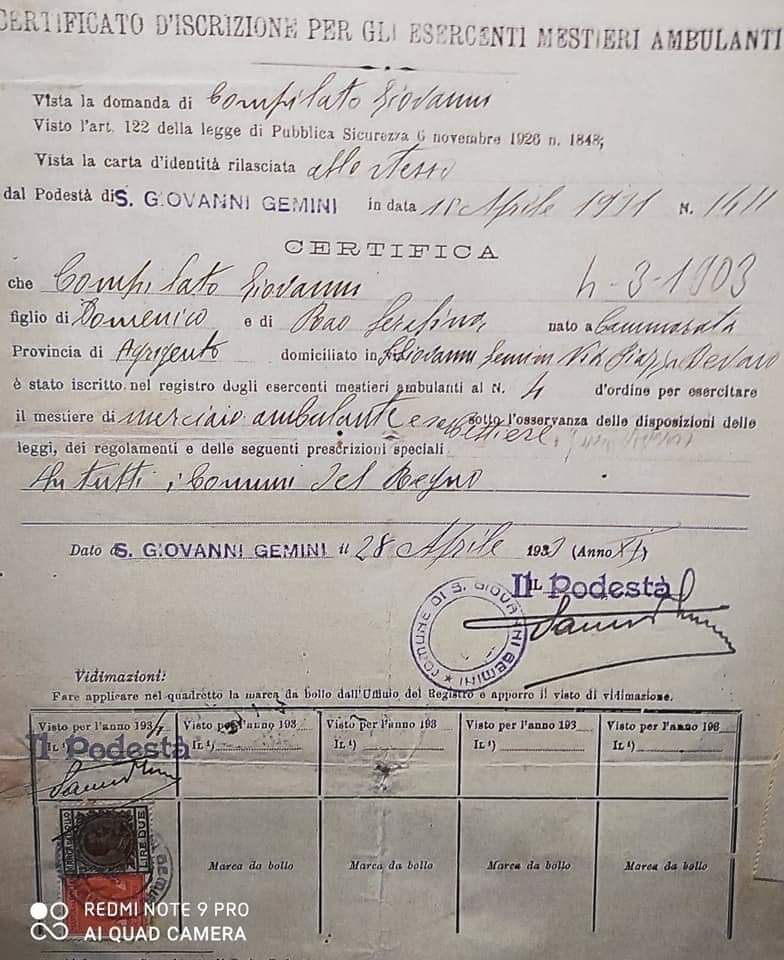 CERTIFICATO D'ISCRIZIONE PER GLI ESERCENTI MESTIERI AMBULANTI
Vista la domanda di Compilato Giovanni
Visto l'art. 122 della legge di Pubblica Sicurezza 6 novembre 1926 n. 1848;
Vista la carta d'identità rilasciata allo stesso
dal Podestà di S. GIOVANNI GEMINI in data Aprile N.
CERTIFICA
che Compilato Giovanni 4-3-1903
figlio di Domenico e di Serafina nato a Cammarata
Provincia di Agrigento domiciliato in S. Giovanni Gemini Via Piazza
è stato iscritto nel registro degli esercenti mestieri ambulanti al N. 4 d'ordine per esercitare
il mestiere di merciaio ambulante e sotto l'osservanza delle disposizioni delle
leggi, dei regolamenti e delle seguenti prescrizioni speciali
In tutti i Comuni del Regno
Dato a S. GIOVANNI GEMINI il 28 Aprile 193 (Anno XI)
IL Il Podestà
COMUNE DI S. GIOVANNI GEMINI
Vidimazioni:
Fare applicare nel quadretto la marca da bollo dall'Ufficio del Registro e apporre il visto di vidimazione.
Visto per l'anno 193 Visto per l'anno 193 Visto per l'anno 193 Visto per l'anno 193 Visto per l'anno 193
Il Podestà IL ¹) IL ¹) IL ¹) IL ¹)
LIRE DUE
Marca da bollo Marca da bollo Marca da bollo Marca da bollo
REDMI NOTE 9 PRO
AI QUAD CAMERA